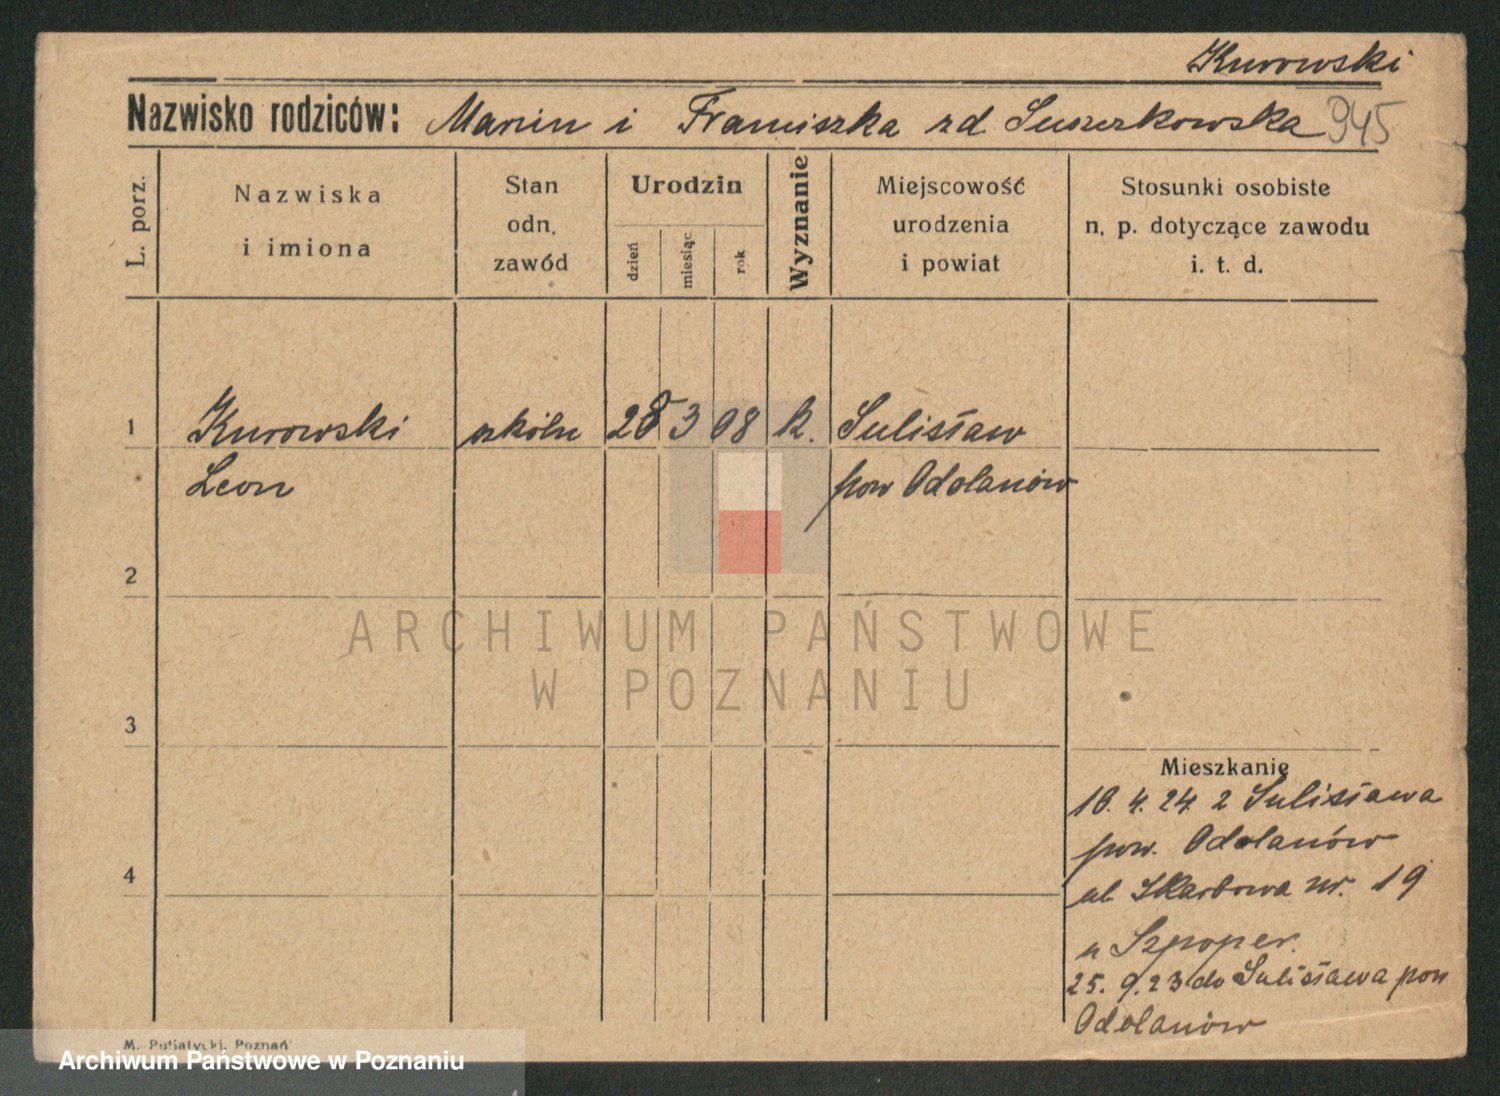 Kurowski
Nazwisko rodziców: Marcin i Franciszka zd Suszerkowska 945
L. porz.
Nazwiska
i imiona
Stan
odn.
zawód
Urodzin
dzień
miesiąc
rok
Wyznanie
Miejscowość
urodzenia
i powiat
Stosunki osobiste
n. p. dotyczące zawodu
i. t. d.
1 Kurowski szkóln 28 3 08 k. Sulisław
Leon pow Odolanów
2
ARCHIWUM PAŃSTWOWE
W POZNANIU
3
Mieszkanie
10. 4. 24 z Sulisława
pow. Odolanów
4
ul Skarbowa nr. 19
u Szpoper.
25. 9. 23 do Sulisława pow
Odolanów
M. Putiatycki, Poznań
Archiwum Państwowe w Poznaniu